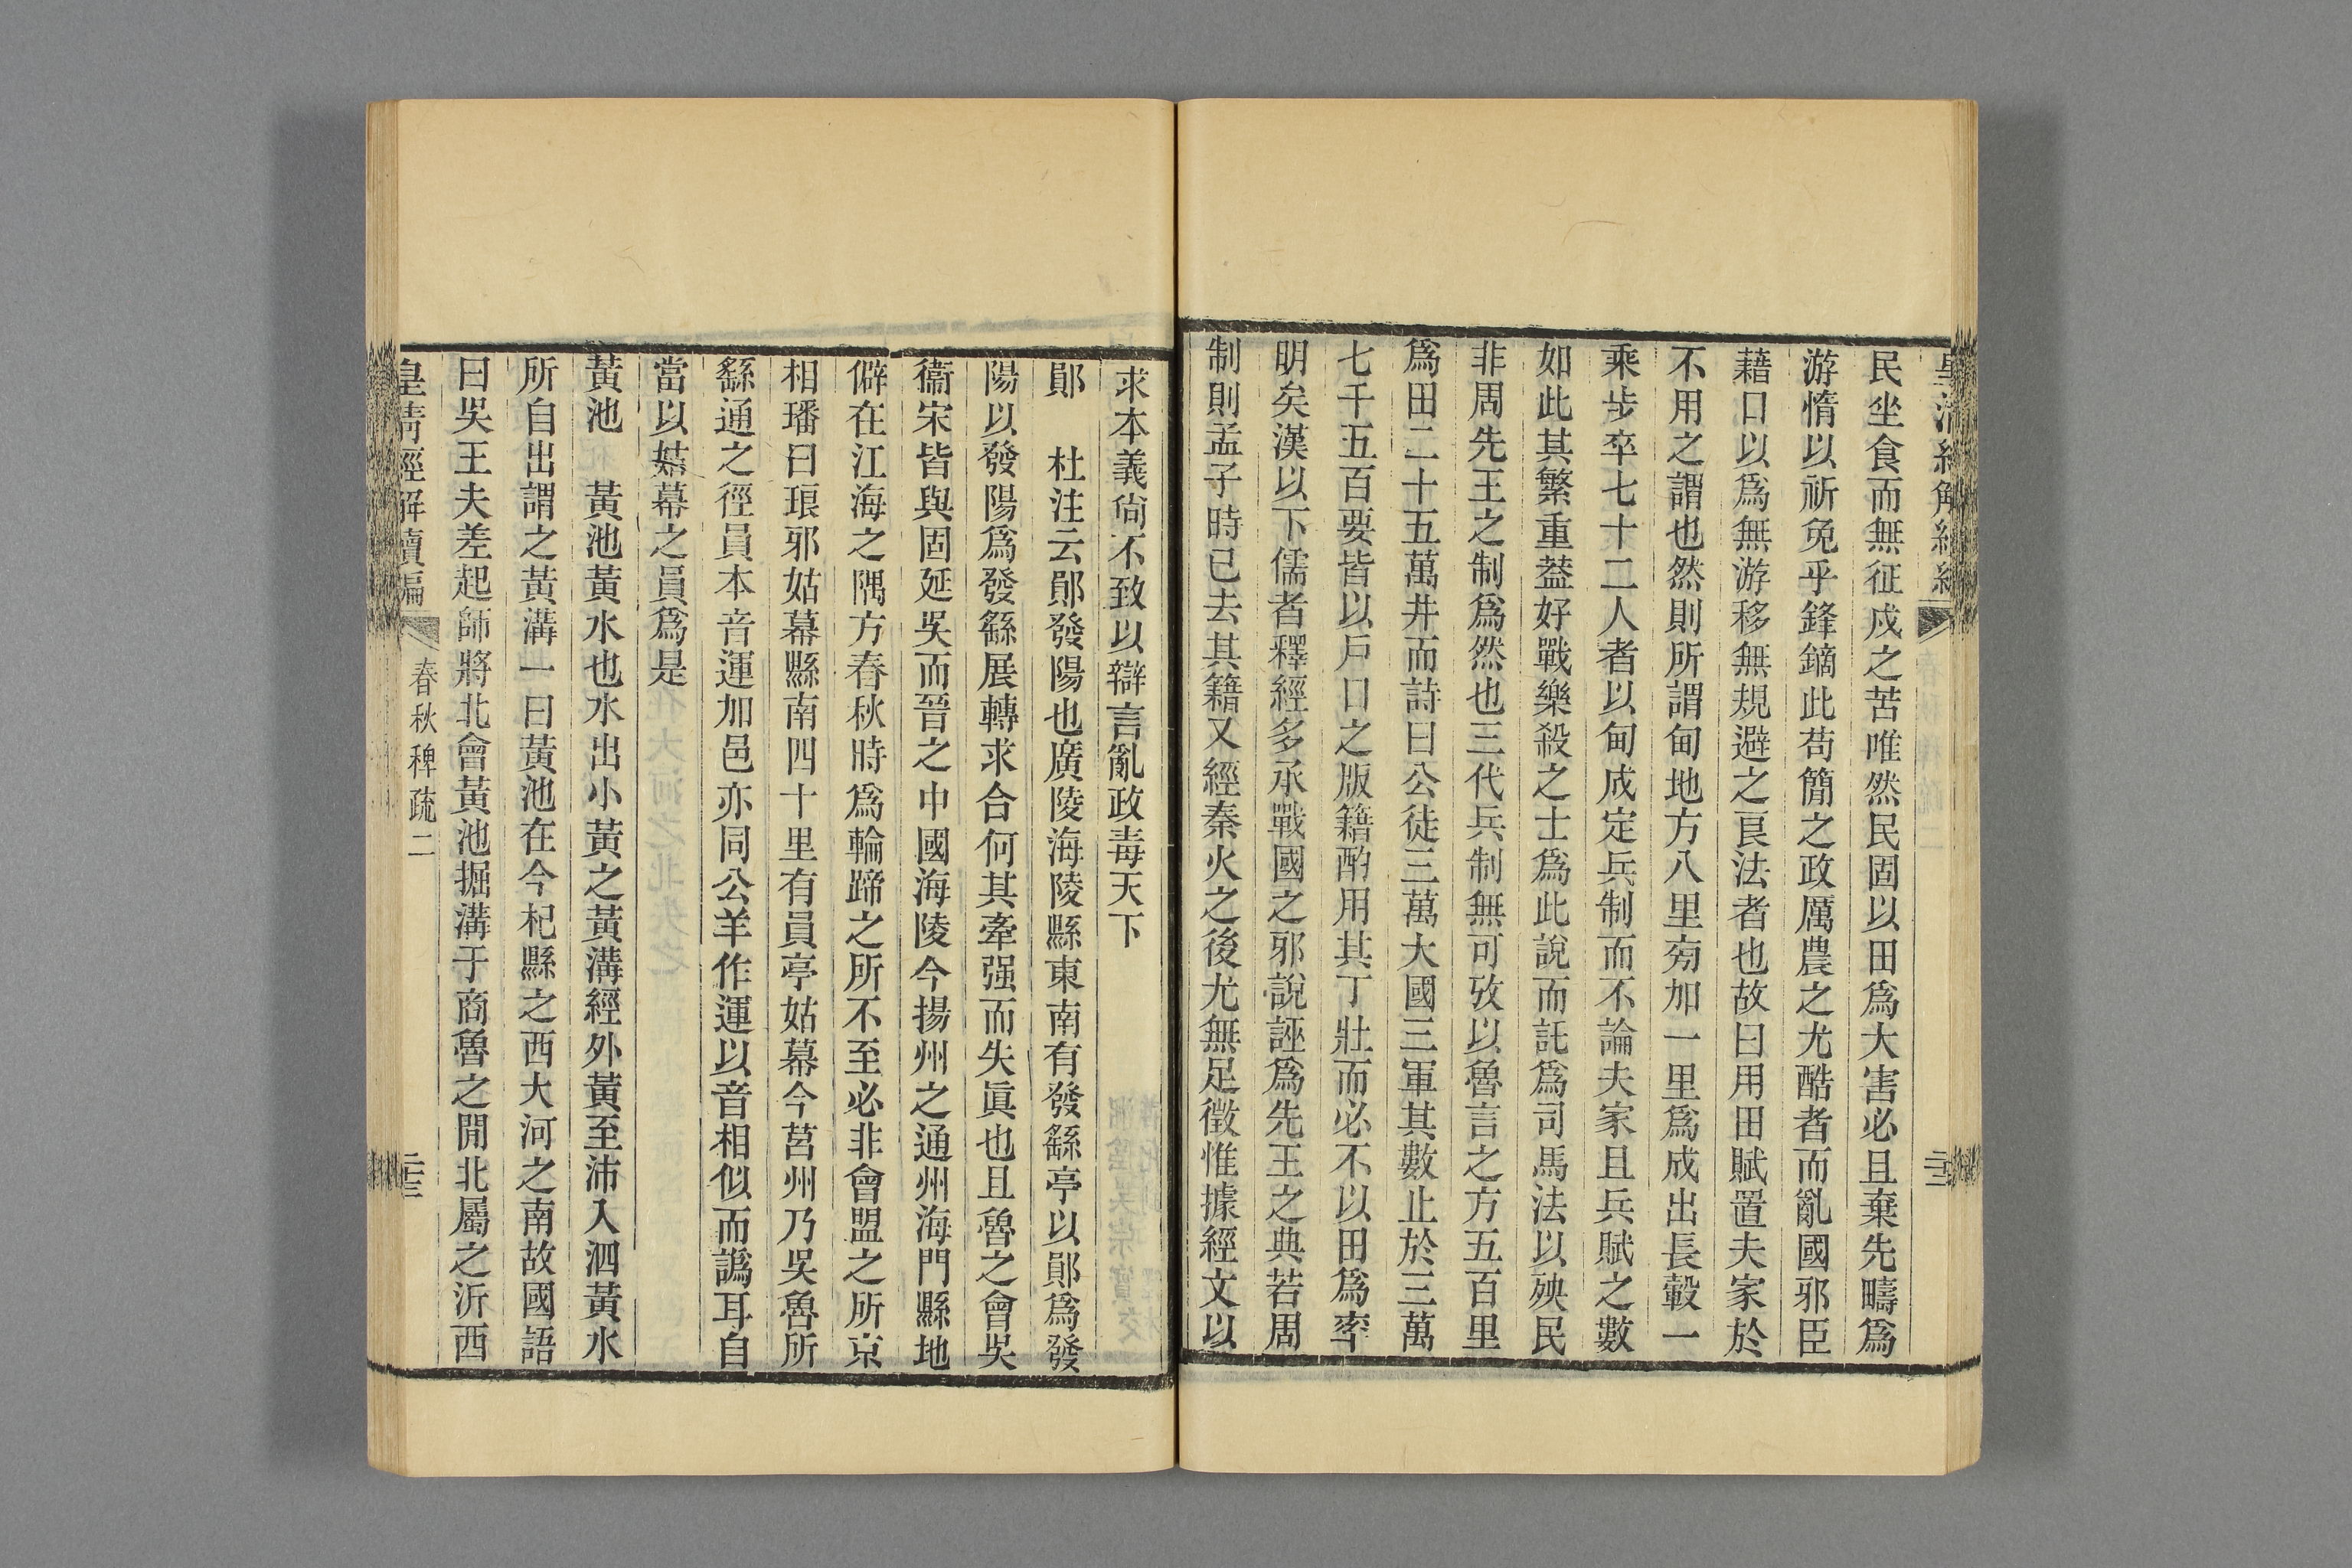 民坐食而無征戍之苦唯然民固以田爲大害必且棄先疇爲
游惰以祈免乎鋒鏑此苟簡之政厲農之尤酷者而亂國邪臣
藉口以爲無游移無規避之良法者也故曰用田賦置夫家於
不用之謂也然則所謂甸地方八里旁加一里爲成出長轂一
乘步卒七十二人者以甸成定兵制而不論夫家且兵賦之數
如此其繁重葢好戰樂殺之士爲此說而託爲司馬法以殃民
非周先王之制爲然也三代兵制無可攷以魯言之方五百里
爲田二十五萬井而詩曰公徒三萬大國三軍其數止於三萬
七千五百要皆以戶口之版籍酌用其丁壯而必不以田爲率
明矣漢以下儒者釋經多承戰國之邪說誣爲先王之典若周
制則孟子時已去其籍又經秦火之後尤無足徵惟據經文以
求本義尙不致以辯言亂政毒天下
鄖　杜注云鄖發陽也廣陵海陵縣東南有發繇亭以鄖爲發
陽以發陽爲發繇展轉求合何其牽强而失眞也且魯之會吳
衞宋皆與固延吳而晉之中國海陵今揚州之通州海門縣地
僻在江海之隅方春秋時爲輪蹄之所不至必非會盟之所京
相璠曰琅邪姑幕縣南四十里有員亭姑幕今莒州乃吳魯所
繇通之徑員本音運加邑亦同公羊作運以音相似而譌耳自
當以姑幕之員爲是
黃池　黃池黃水也水出小黃之黃溝經外黃至沛入泗黃水
所自出謂之黃溝一曰黃池在今杞縣之西大河之南故國語
曰吳王夫差起師將北會黃池掘溝于商魯之閒北屬之沂西
皇清經解續編
春秋稗疏二
二十三